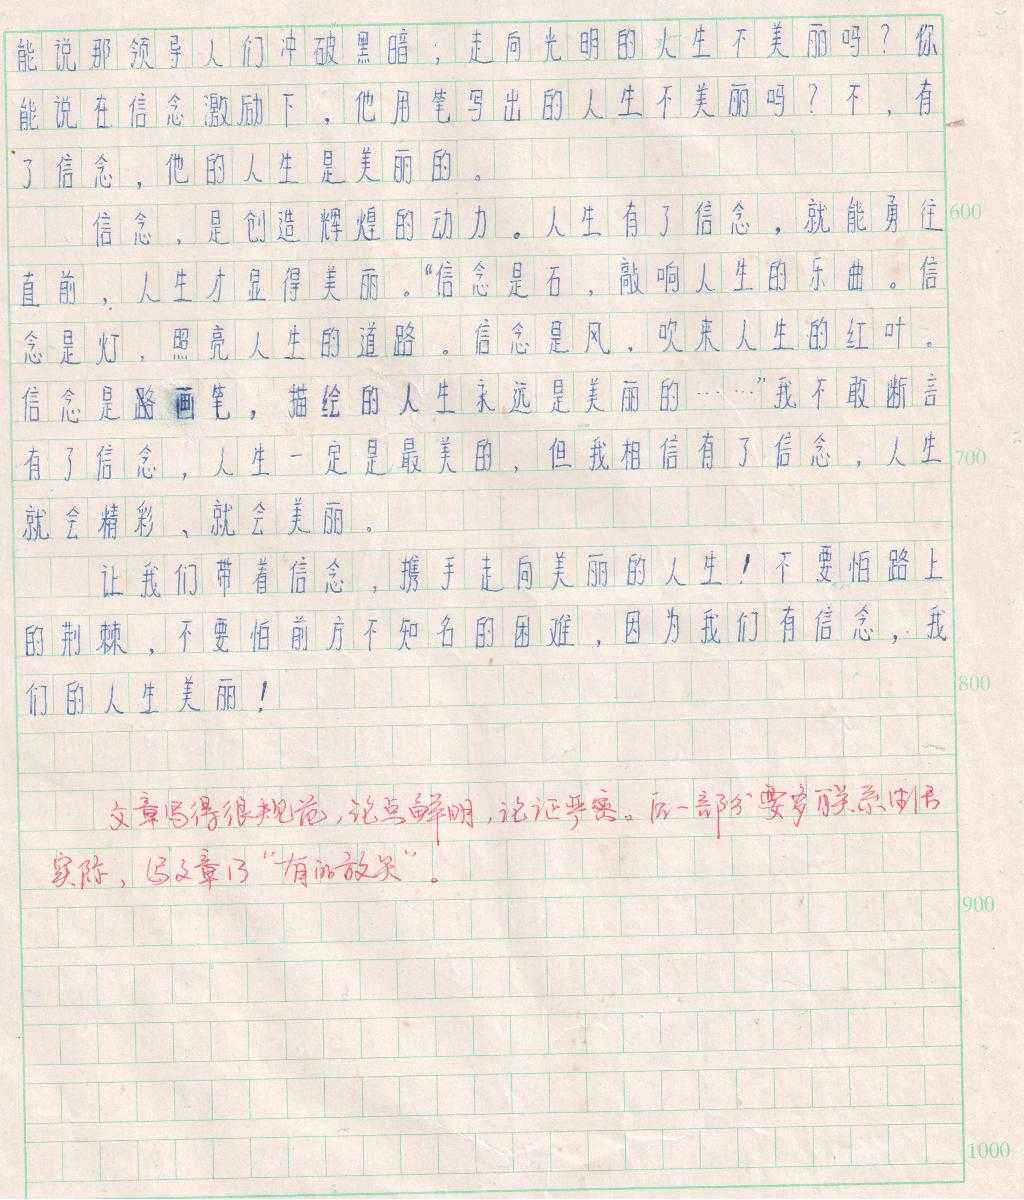 能说那领导人们冲破黑暗；走向光明的人生不美丽吗？你
能说在信念激励下，他用笔写出的人生不美丽吗？不，有
了信念，他的人生是美丽的。
信念，是创造辉煌的动力。人生有了信念，就能勇往
600
直前，人生才显得美丽。“信念是石，敲响人生的乐曲。信
念是灯，照亮人生的道路。信念是风，吹来人生的红叶。
信念是路画笔，描绘的人生永远是美丽的……”我不敢断言
有了信念，人生一定是最美的，但我相信有了信念，人生
700
就会精彩、就会美丽。
让我们带着信念，携手走向美丽的人生！不要怕路上
的荆棘，不要怕前方不知名的困难，因为我们有信念，我
们的人生美丽！
800
文章写得很规范，论点鲜明，论证严密。后一部分要多联系
实际，写文章“有的放矢”。
900
1000